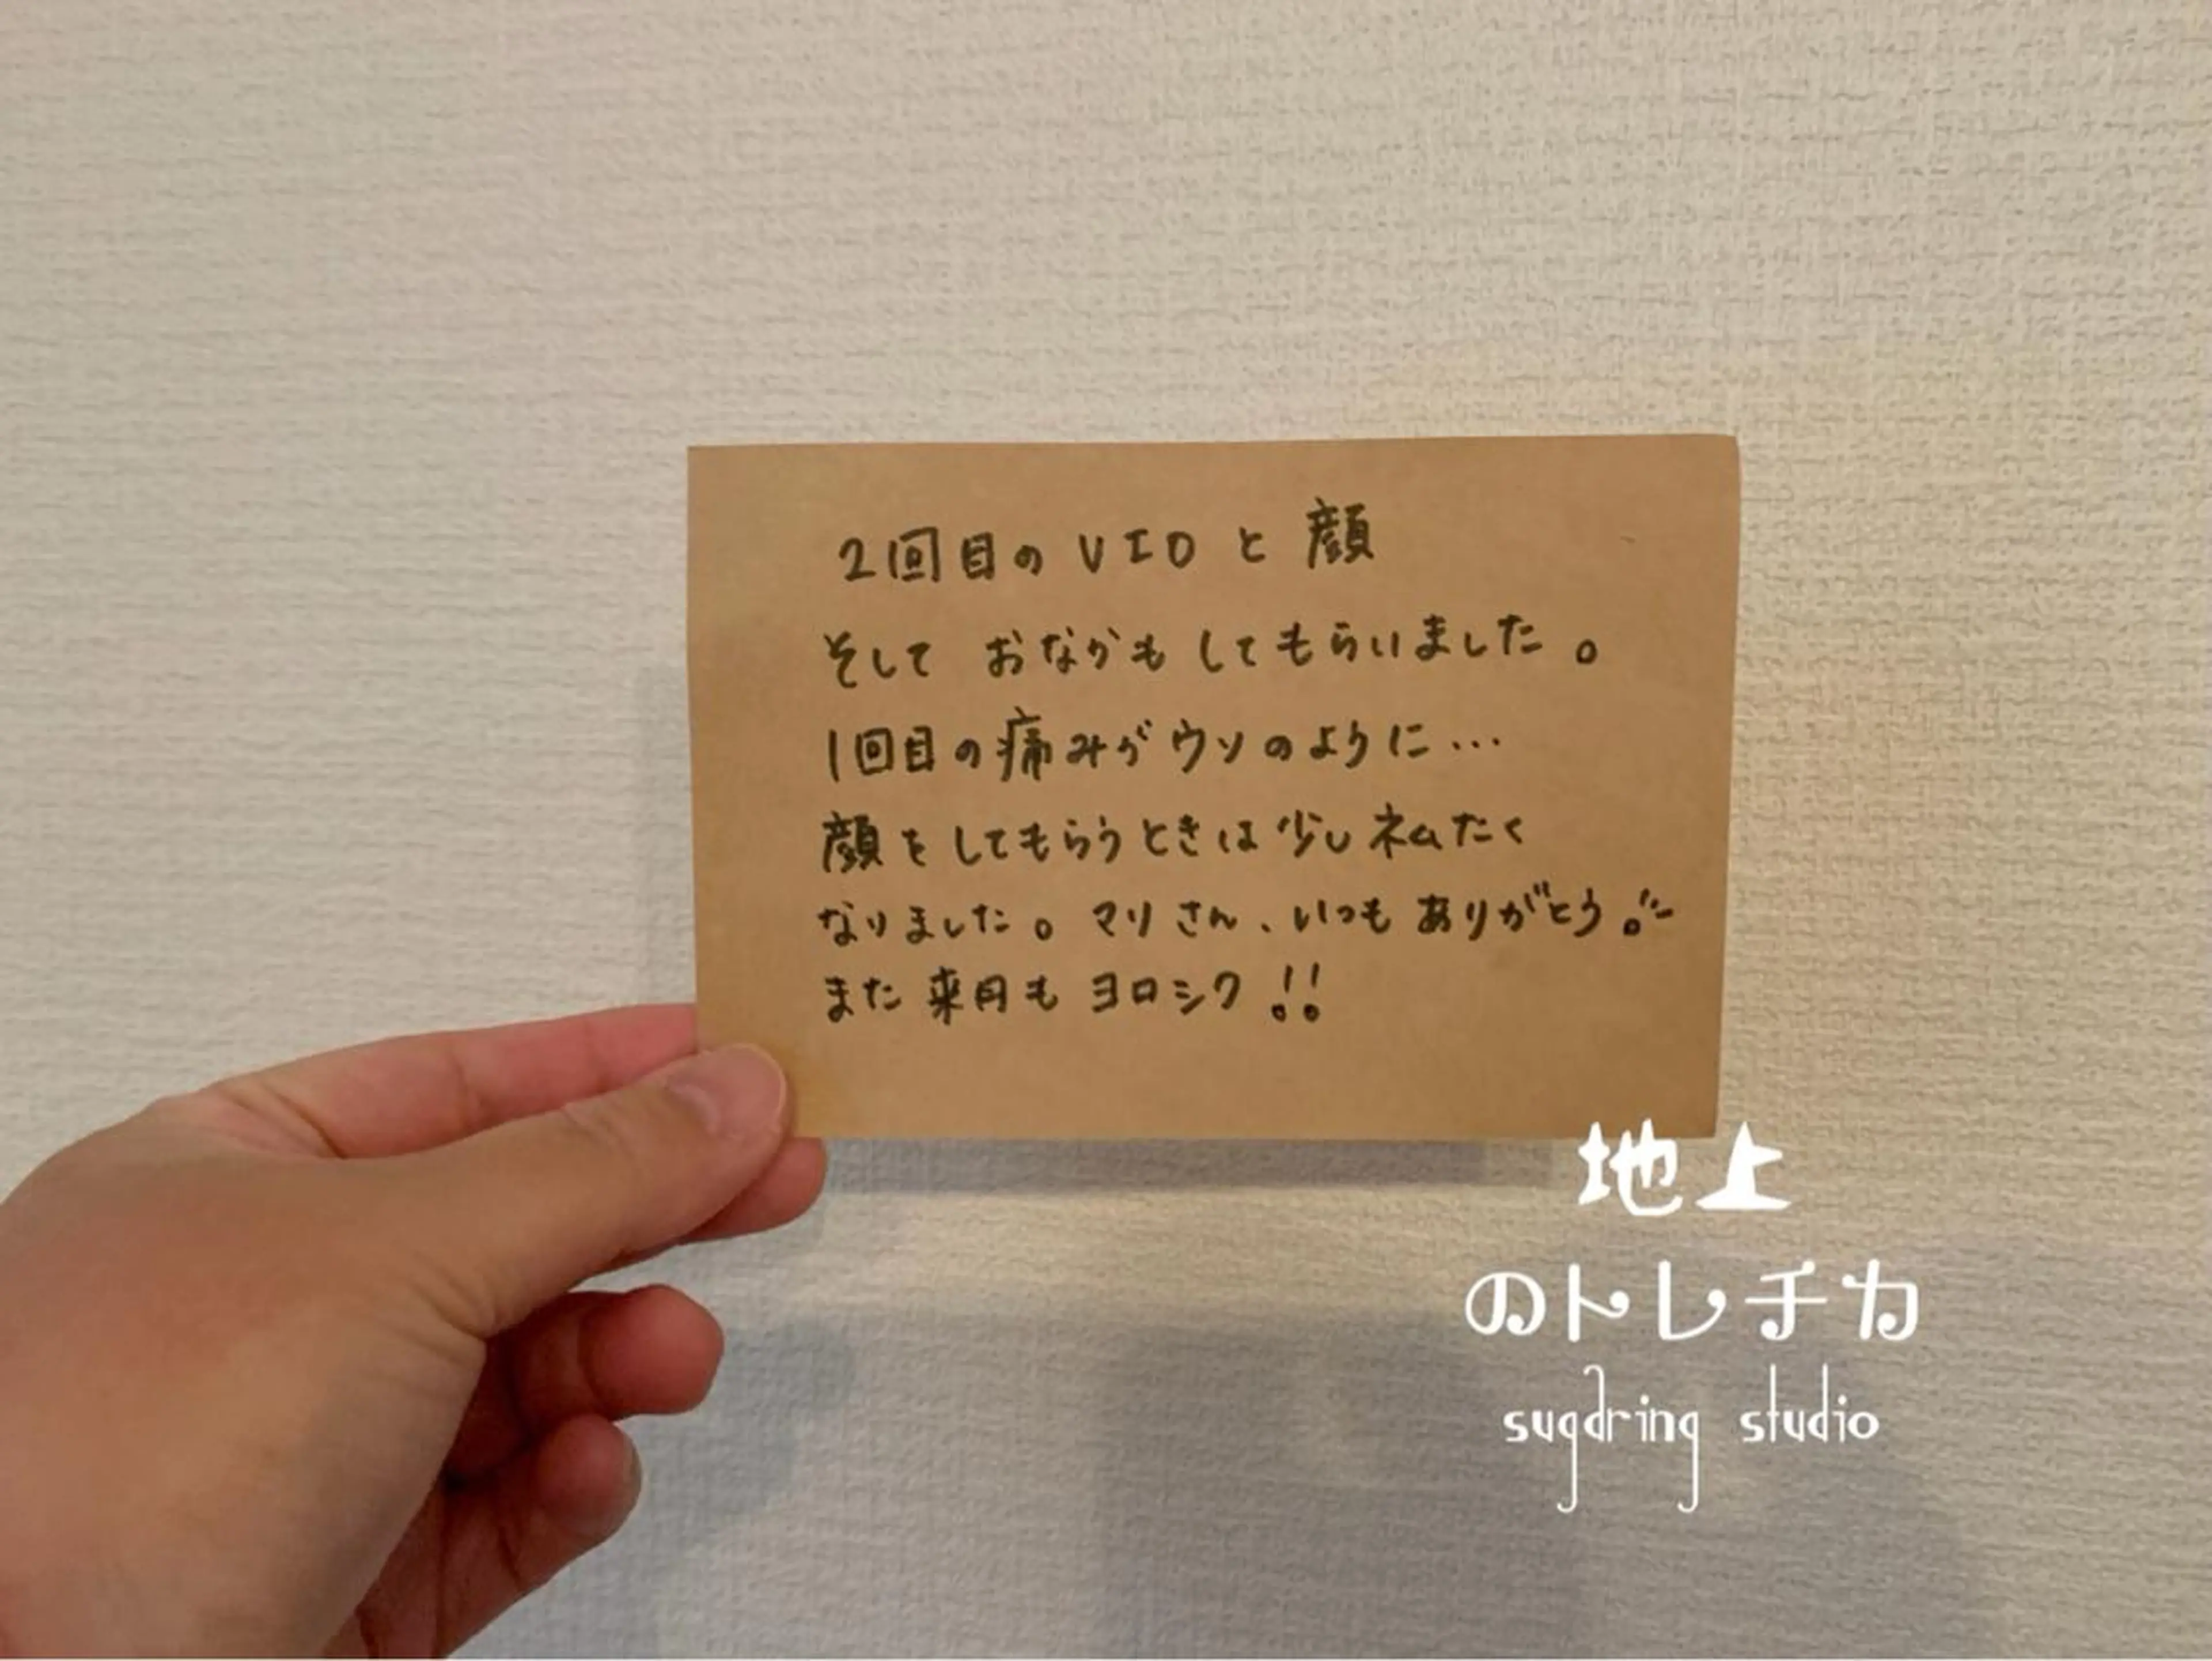 2回目のVIOと顔
そして おなかも してもらいました。
1回目の痛みがウソのように…
顔をしてもらうときは少しネムたく
なりました。マリさん、いつもありがとう。
また来月もヨロシク!!
地上
のトレチカ
sugaring studio